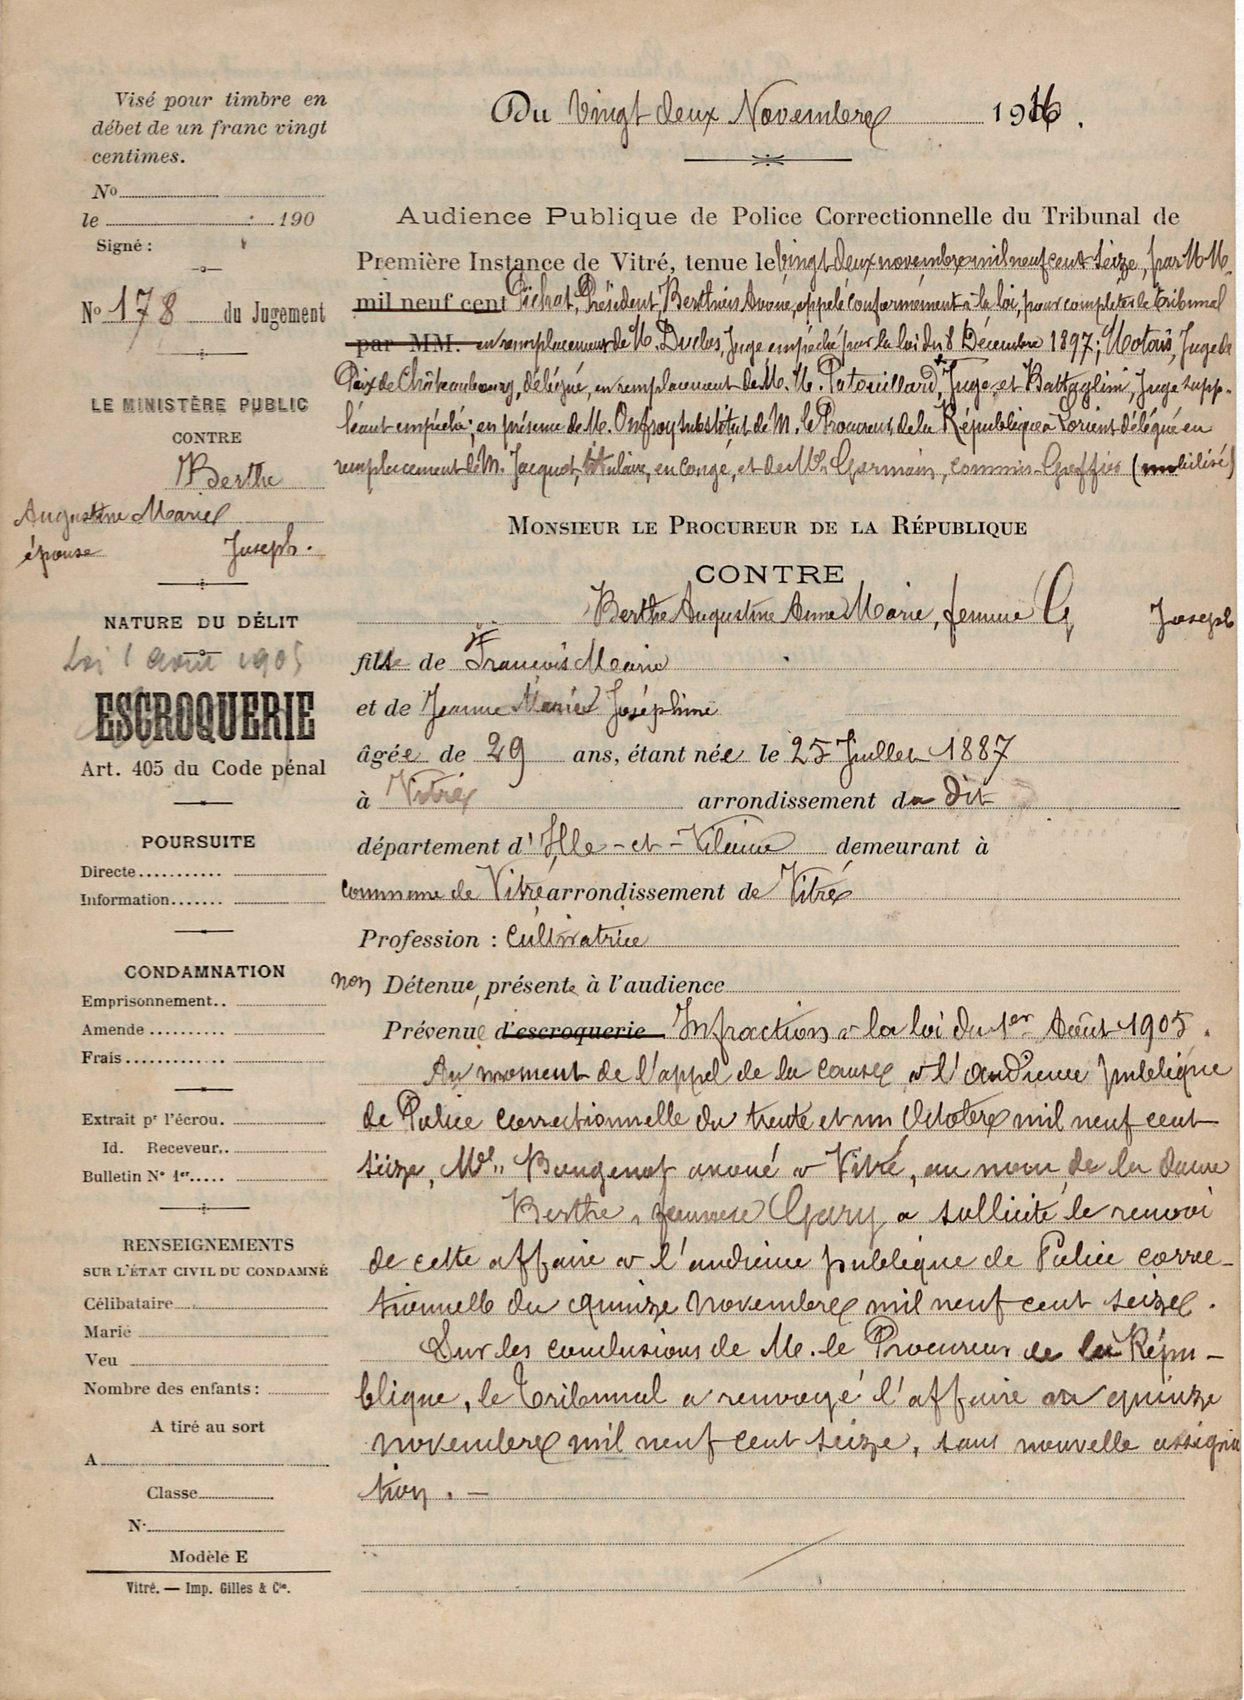 Visé pour timbre en
débet de un franc vingt
centimes.
No
le 190
Signé :
No 178 du Jugement
LE MINISTÈRE PUBLIC
CONTRE
Berthe
Augustine Marie
épouse Joseph.
NATURE DU DÉLIT
Loi 1 août 1905
ESCROQUERIE
Art. 405 du Code pénal
POURSUITE
Directe
Information
CONDAMNATION
Emprisonnement
Amende
Frais
Extrait pr l'écrou.
Id. Receveur
Bulletin No 1er
RENSEIGNEMENTS
SUR L'ÉTAT CIVIL DU CONDAMNÉ
Célibataire
Marié
Veu
Nombre des enfants :
A tiré au sort
A
Classe
N
Modèle E
Vitré. — Imp. Gilles & Cie.
Du Vingt deux Novembre 1916.
Audience Publique de Police Correctionnelle du Tribunal de
Première Instance de Vitré, tenue le Vingt deux novembre mil neuf cent seize, par M.M.
mil neuf cent Pichot, Président, Avoué, appelé conformément à la loi, pour compléter le tribunal
par MM. en remplacement de M. Duclos, Juge empêché par la loi du 8 Décembre 1897; Juge de
Paix de Châteaubourg, délégué, en remplacement de M.M. Patouillard, Juge, et Battaglini, Juge supp-
léant empêché; en présence de M. Onfroy substitut de M. le Procureur de la République à Lorient délégué en
remplacement de M. Jacquot, titulaire, en congé, et de Me Germain, commis-Greffier (mobilisé)
MONSIEUR LE PROCUREUR DE LA RÉPUBLIQUE
CONTRE
Berthe Augustine Anne Marie, femme G Joseph
fille de François Marie
et de Jeanne Marie Joséphine
âgée de 29 ans, étant née le 25 Juillet 1887
à Vitré arrondissement du dit
département d'Ille-et-Vilaine demeurant à
commune de Vitré arrondissement de Vitré
Profession : Cultivatrice
non Détenue, présente à l'audience
Prévenue d'escroquerie Infraction à la loi du 1er Août 1905.
Au moment de l'appel de la cause, à l'audience publique
de Police correctionnelle du trente et un Octobre mil neuf cent
seize, Me avoué à Vitré, au nom de la dame
Berthe, femme a sollicité le renvoi
de cette affaire à l'audience publique de Police correc-
tionnelle du quinze novembre mil neuf cent seize.
Sur les conclusions de M. le Procureur de la Répu-
blique, le Tribunal a renvoyé l'affaire au quinze
novembre mil neuf cent seize, sans nouvelle assigna
tion. —